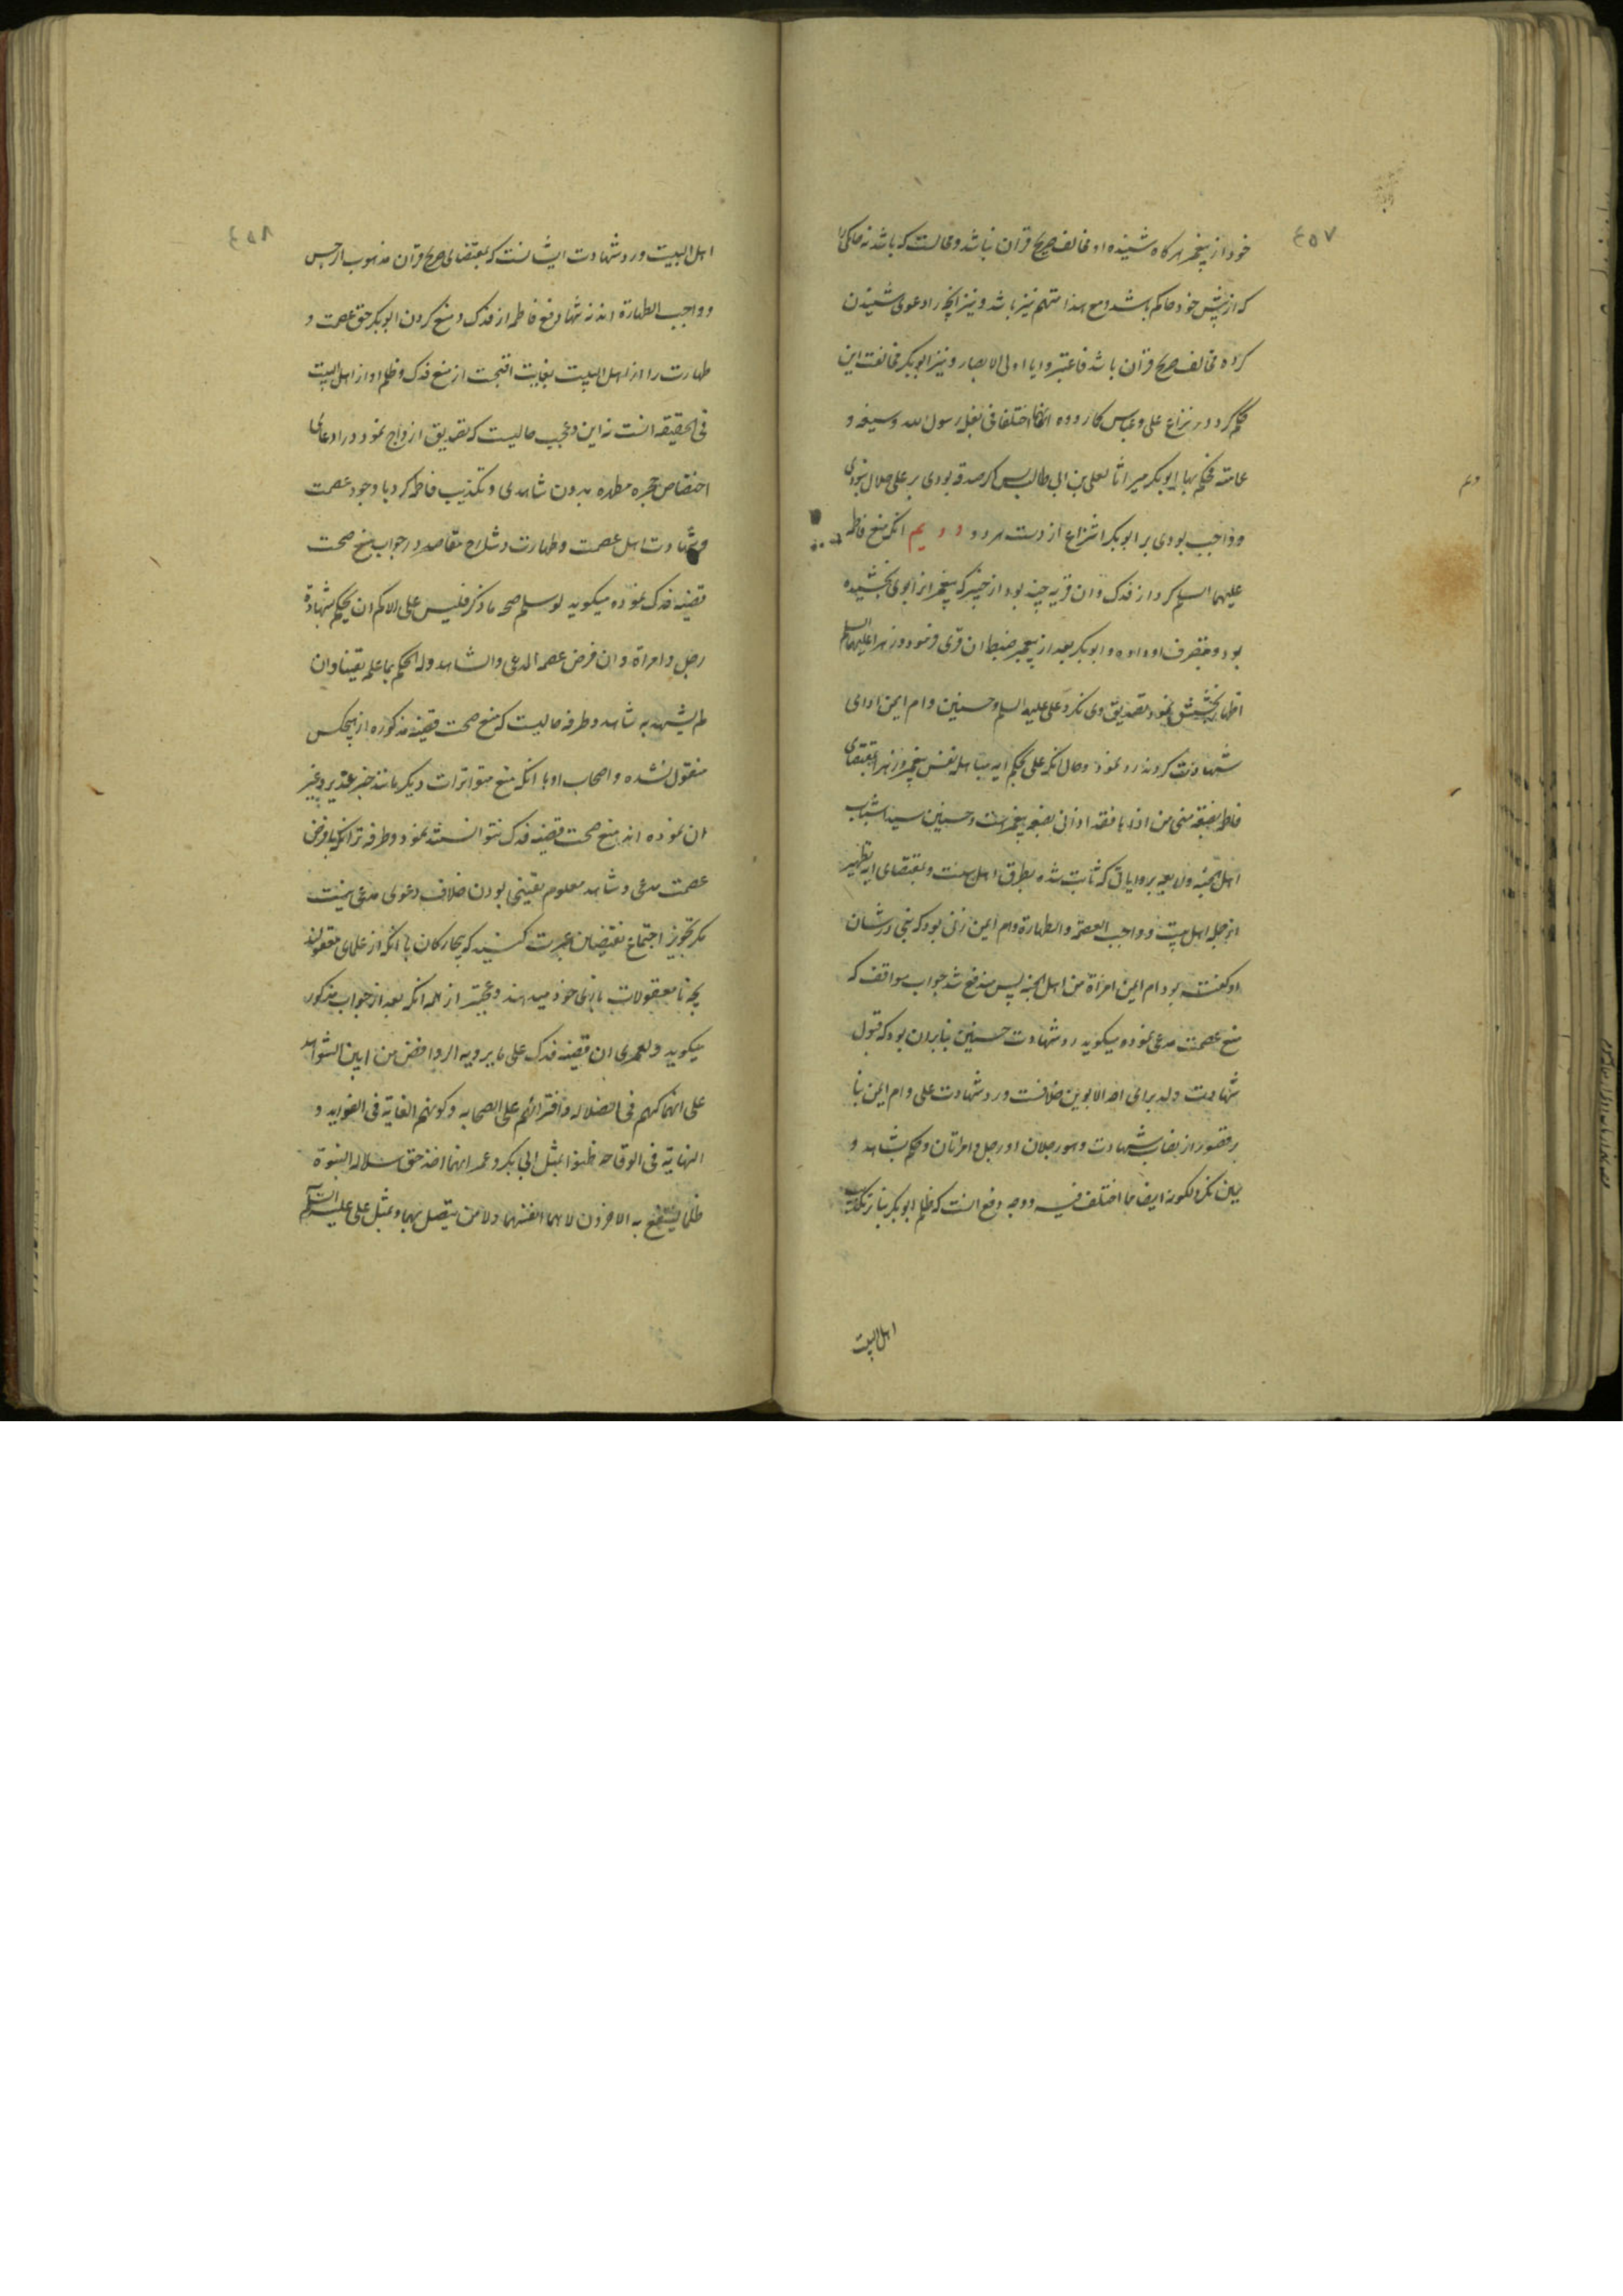 ٤٥٧
خود از پیغمبر هرگاه شنیده او مخالف صریح قران نباشد و محالست که باشد نه حاکمی را
که از پیش خود حاکم باشد و مع هذا متهم نیز باشد و نیز انچه را دعوی شنیدن
کرده مخالف صریح قران باشد فاعتبروا یا اولی الابصار و نیز ابوبکر مخالفت این
حکم کرد در نزاع علی و عباس کما رووه انهما اختلفا فی بغل رسول الله و سیفه و
عمامته فحکم بها ابوبکر میراثا لعلی بن ابی طالب پس اگر صدقه بودی بر علی حلال نبودی
و واجب بودی بر ابوبکر انتزاع از دست هر دو دویم انکه منع فاطمه
علیها السلم کرد از فدک و ان قریه چند بود از خیبر که پیغمبر انرا بوی بخشیده
بود و بتصرف او داده و ابوبکر بعد از پیغمبر ضبط ان قری فرمود و زهرا علیها السلم
اظهار بخشش نمود تصدیق وی نکرد و علی علیه السلم و حسنین و ام ایمن ادای
شهادت کردند رد نمود و حال انکه علی بحکم ایه مباهله نفس پیغمبر و زهرا بمقتضای
فاطمه بضعة منی من اذاها فقد اذانی بضعه پیغمبرست و حسنین سیدا شباب
اهل الجنه ولایعیه بروایاتی که ثابت شده بطرق اهل سنت و بمقتضای ایه تطهیر
از جمله اهل بیت و واجب العصمة والطهارة و ام ایمن زنی بود که نبی در شان
او گفته بود ام ایمن امراة من اهل الجنه پس مندفع شد جواب مواقف که
منع عصمت مدعی نموده میگوید رد شهادت حسنین بنا بران بود که قبول
شهادت ولد برای احد الابوین خلافست و رد شهادت علی و ام ایمن بنا
بر قصور از نصاب شهادت و هو رجلان او رجل و امراتان و حکم بشاهد و
یمین نکرد لکونه ایضا مما اختلف فیه و وجه دفع انست که ظلم ابوبکر بنا بر تکذیب
اهل البیت
٤٥٨
اهل البیت و رد شهادت ایشانست که بمقتضای صریح قران مذهوب از رجس
و واجب الطهارة اند نه تنها دفع فاطمه از فدک و منع کردن ابوبکر حق عصمت و
طهارت را از اهل البیت بغایت اقبحست از منع فدک و ظلم او از اهل البیت
فی الحقیقه انست نه این و عجیب حالیست که تصدیق ازواج نمود در ادعای
اختصاص حجره مطهره بدون شاهدی و تکذیب فاطمه کرد با وجود عصمت
و شهادت اهل عصمت و طهارت و شارح مقاصد در جواب منع صحت
قضیه فدک نموده میگوید لو سلم صحة ما ذکر فلیس علی الحاکم ان یحکم بشهادة
رجل و امراة و ان فرض عصمة المدعی والشاهد وله الحکم بما علمه یقینا وان
لم یشهد به شاهد و طرفه حالیست که منع صحت قضیه مذکوره از هیچکس
منقول نشده و اصحاب او با انکه منع متواترات دیگر مانند خبر غدیر و غیر
ان نموده اند منع صحت قضیه فدک نتوانستند نمود و طرفه تر انکه با فرض
عصمت مدعی و شاهد معلوم یقینی بودن خلاف دعوی مدعی نیست
مگر تجویز اجتماع نقیضان عبرت کنید که بیچارگان با انکه از علمای معقولند
بچه نامعقولات بازی خود میدهند و عجبتر از همه انکه بعد از جواب مذکور
میگوید و لعمری ان قضیه فدک علی ما یرویه الروافض من ابین الشواهد
علی انهماکهم فی الضلاله و افترائهم علی الصحابه و کونهم الغایة فی الغوایه و
النهایة فی الوقاحه ظنوا بمثل ابی بکر و عمر انهما اخذ حق سلالة النبوة
ظلما لینتفع به الاخرون لا هما انفسهما ولا من یتصل بهما و بمثل علی علیه السلم